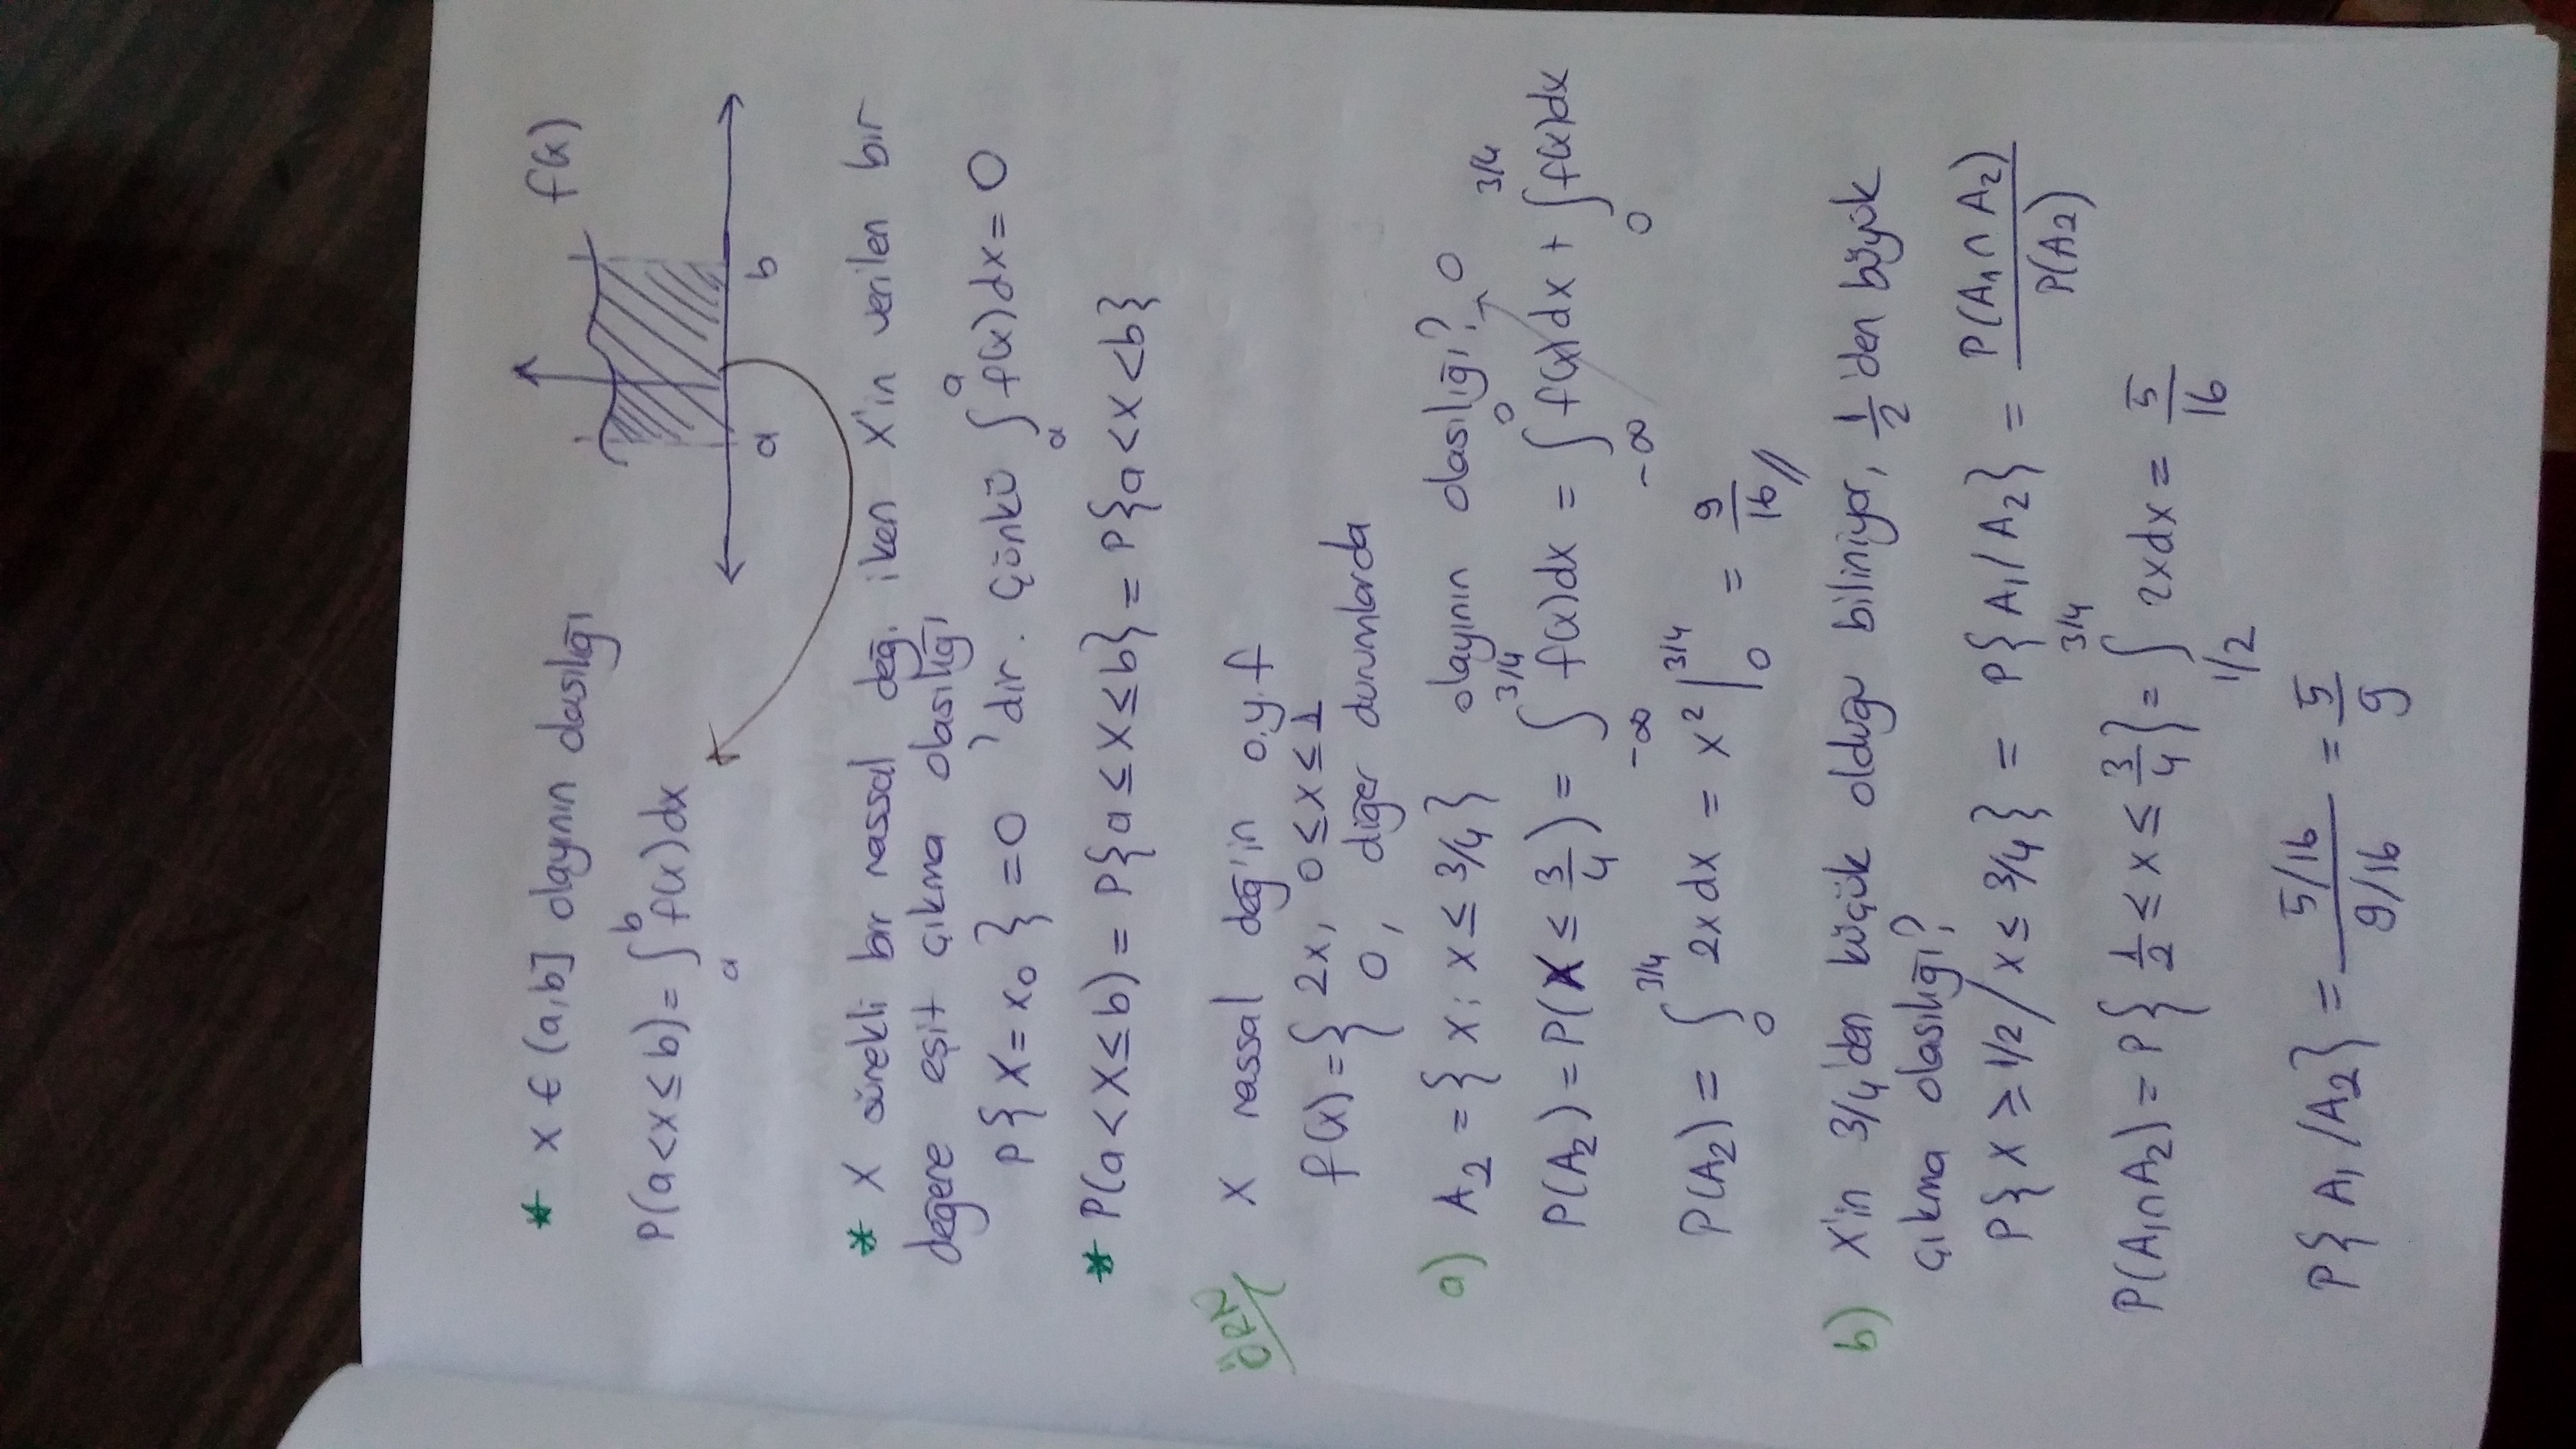 * X ∈ (a,b] olayının olasılığı
f(x)
P(a<x≤b) = ∫_a^b f(x)dx
a b
* X sürekli bir rassal değ. iken X'in verilen bir
değere eşit çıkma olasılığı
P{X=x₀} = 0 'dır. Çünkü ∫_a^a f(x)dx = 0
* P(a<X≤b) = P{a≤X≤b} = P{a<X<b}
ÖRN X rassal değ'in o.y.f
f(x) = { 2x, 0≤x≤1
0, diğer durumlarda
a) A₂ = {x; x≤3/4} olayının olasılığı? 0
P(A₂) = P(X ≤ 3/4) = ∫_{-∞}^{3/4} f(x)dx = ∫_{-∞}^0 f(x)dx + ∫_0^{3/4} f(x)dx
P(A₂) = ∫_0^{3/4} 2x dx = x² |_0^{3/4} = 9/16 //
b) X'in 3/4'den küçük olduğu biliniyor, 1/2'den büyük
çıkma olasılığı?
P{X ≥ 1/2 / x ≤ 3/4} = P{A₁/A₂} = P(A₁∩A₂) / P(A₂)
P(A₁∩A₂) = P{1/2 ≤ x ≤ 3/4} = ∫_{1/2}^{3/4} 2xdx = 5/16
P{A₁/A₂} = (5/16) / (9/16) = 5/9